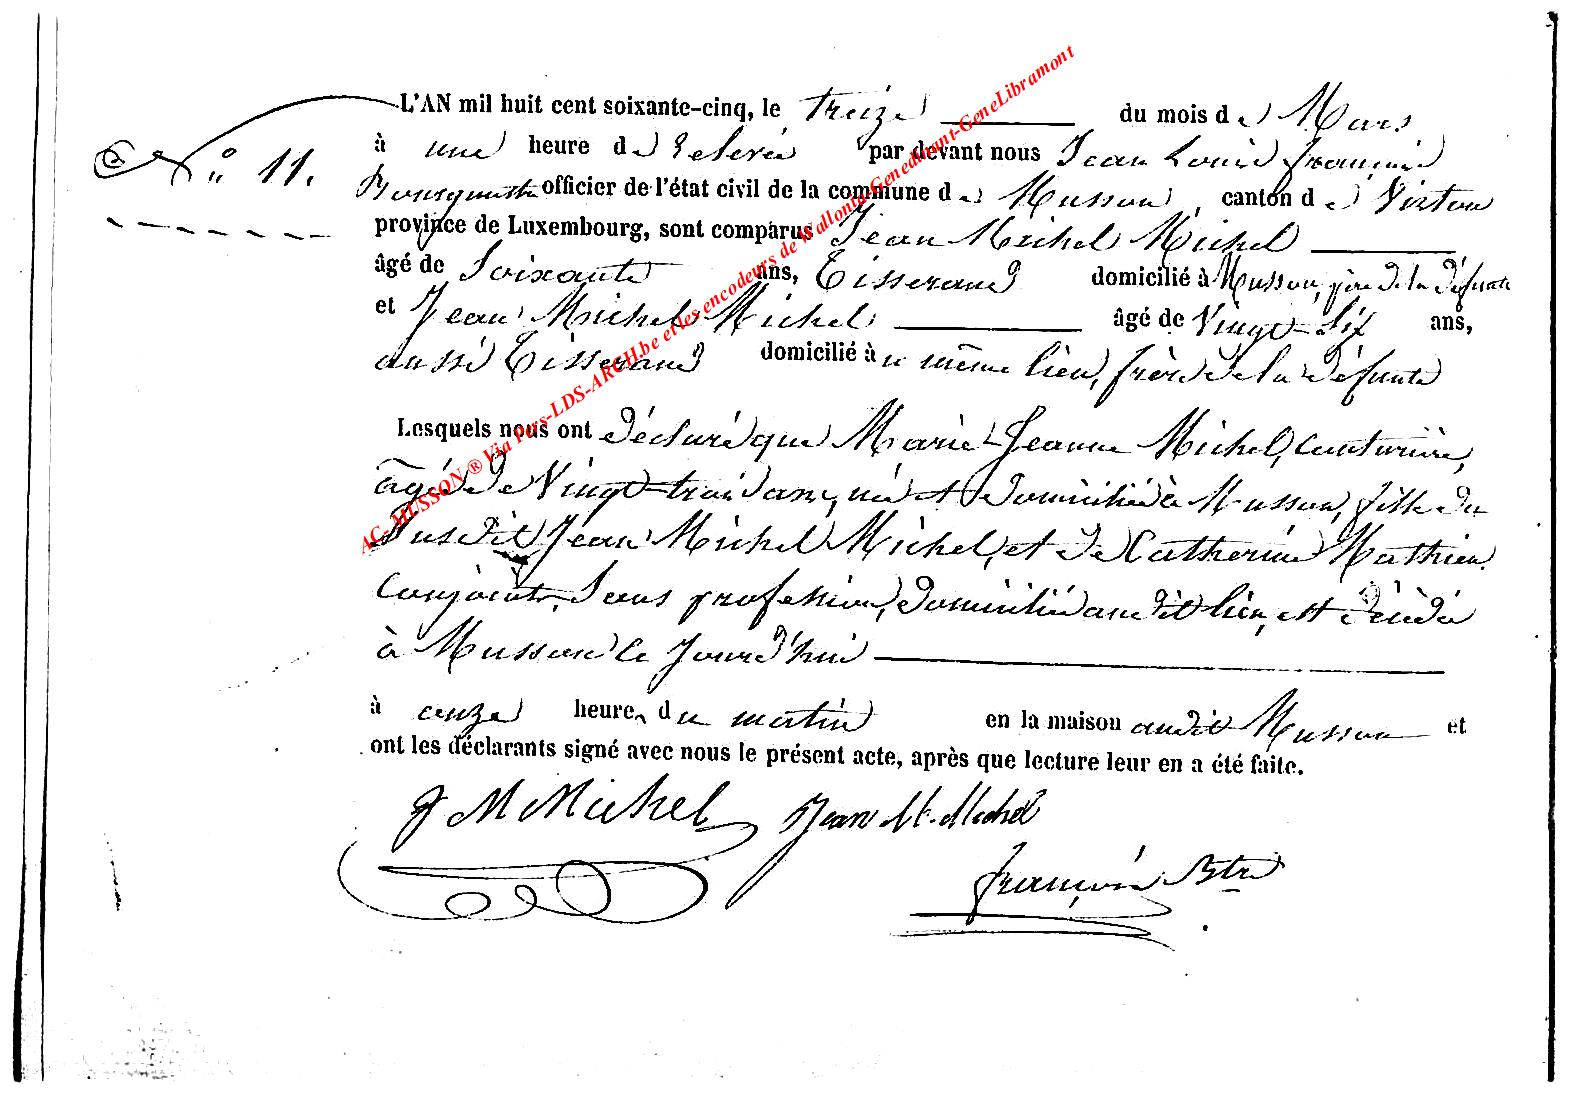 L'AN mil huit cent soixante-cinq, le treize du mois de Mars
N.° 11. à une heure de relevée par devant nous Jean Louis françois
Bourguignon officier de l'état civil de la commune de Musson, canton de Virton
province de Luxembourg, sont comparus Jean Michel Michel
âgé de Soixante ans, Tisserand domicilié à Musson, père de la défunte
et Jean Michel Michel âgé de Vingt-Six ans,
aussi Tisserand domicilié au même lieu, frère de la défunte
Lesquels nous ont déclaré que Marie-Jeanne Michel, couturière,
agée de Vingt-trois ans, née et domiciliée à Musson, fille du
Susdit Jean Michel Michel, et de Catherine Mathieu
Conjoints, Sans profession, domiciliée audit lieu, est décédée
à Musson le Jourd'hui
à onze heures du matin en la maison audit Musson et
ont les déclarants signé avec nous le présent acte, après que lecture leur en a été faite.
J M Michel Jean M. Michel
françois
AC-MUSSON ® Via Pars-LDS-ARCH.be et les encodeurs de Wallonia-Genedinant-GeneLibramont